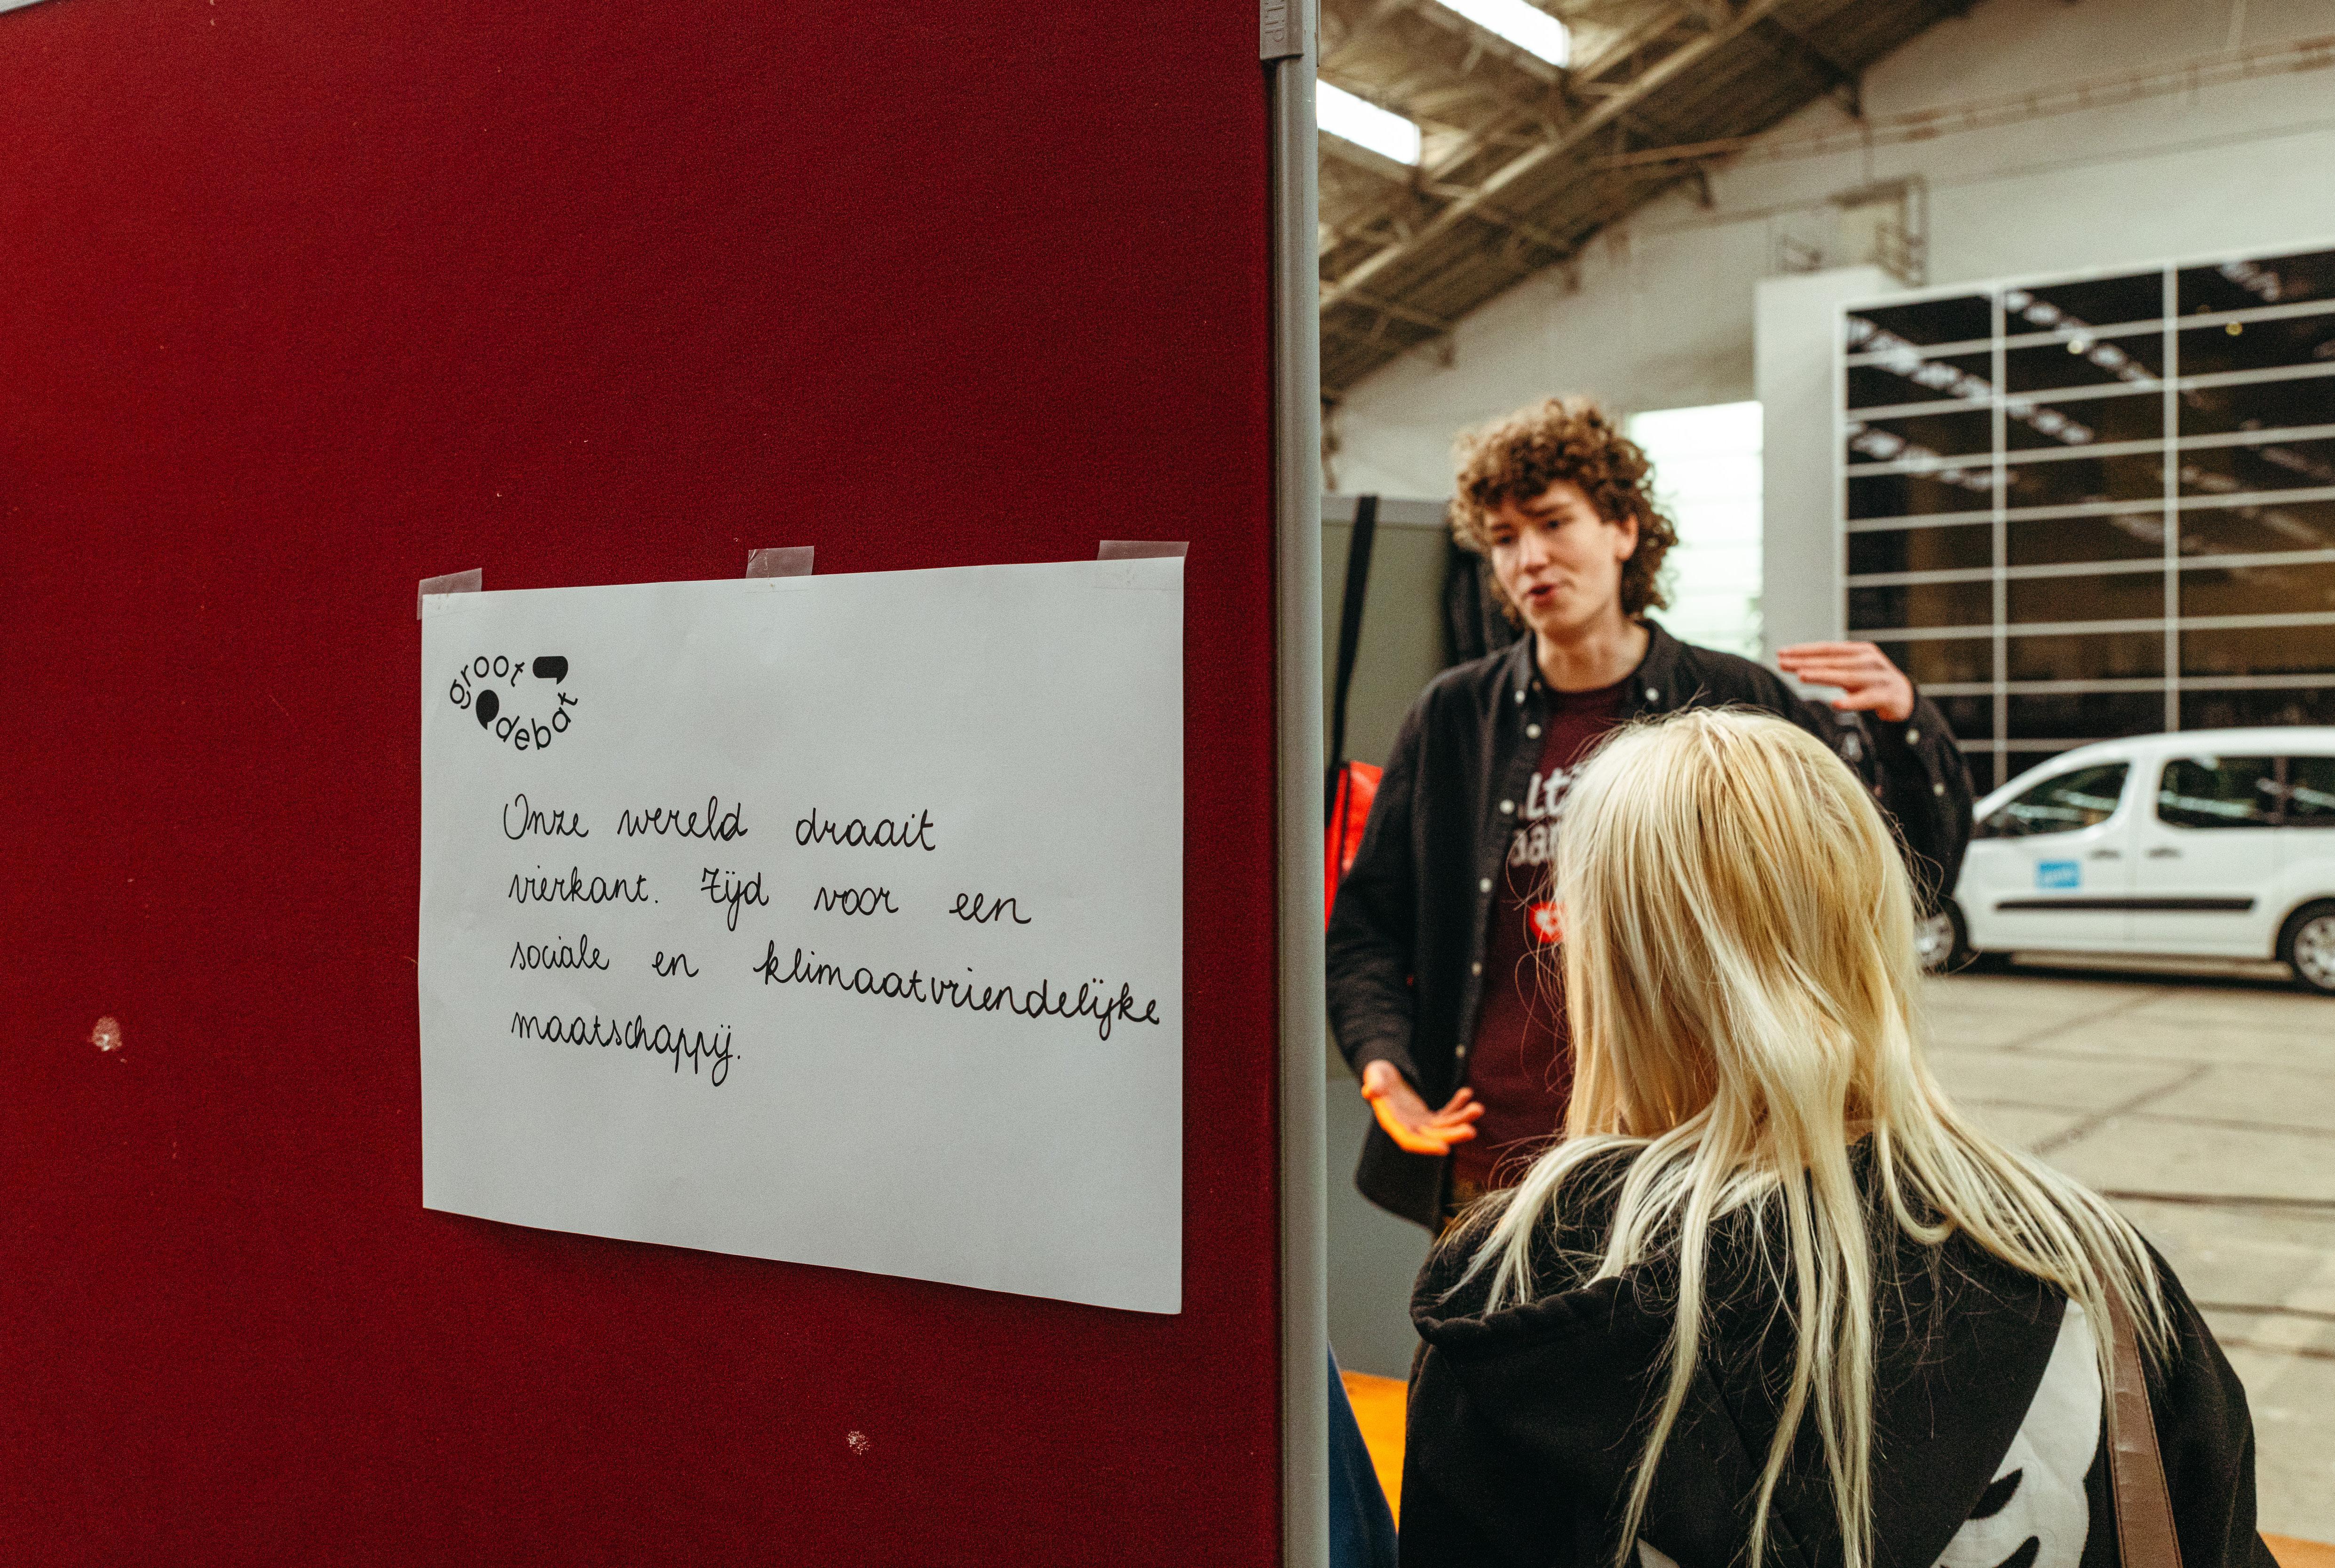 groot
debat
Onze wereld draait
vierkant. Tijd voor een
sociale en klimaatvriendelijke
maatschappij.